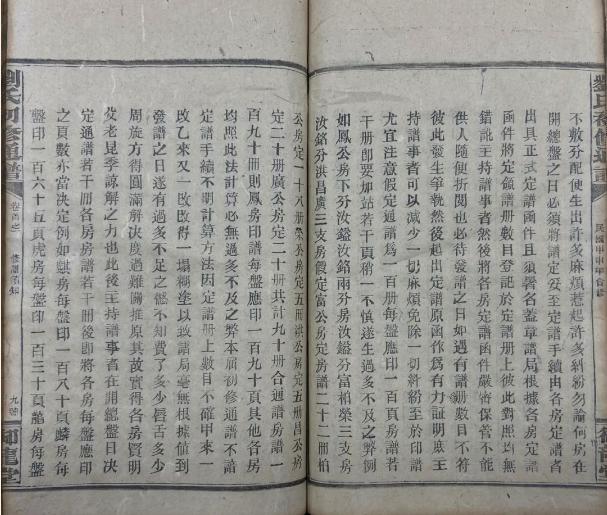 不敷分配使生出許多麻煩惹起許多糾紛勿論何房在
開總盤之日必須將譜定妥至定譜手續由各房定譜者
出具正式定譜函件且須署名蓋章譜局根據各房定譜
函件將定飯譜册數目登記於定譜册上彼此對照均無
錯訛主持譜事者然後將各房定譜函件嚴密保管不能
供人隨便折閱也必待發譜之日如遇有譜册數目不符
彼此發生爭執然後起出定譜原函作為有力証明庶主
持譜事者可以減少一切麻煩免除一切糾紛至於印譜
尤宜注意假定通譜爲一百册每盤應印一百頁房譜若
干册即要加站若干頁稍一不慎遂生過多不及之弊例
如鳳公房下分汝鎰汝銘兩分房汝鎰分富柏榮三支房
汝銘分洪昌廣三支房假定富公房定房譜二十二册柏
公房定一十八册榮公房定五册洪公房定五册昌公房
定二十册廣公房定二十册共計九十册合通譜房譜一
百九十册則鳳房印譜每盤應印一百九十頁其他各房
均照此法計算必無過多不及之弊本屆初修通譜不諳
定譜手續不明計算方法因定譜册上數目不確甲來一
改乙來又一改改得一塌糊塗以致諸局毫無根據值到
發譜之日遂有過多不足之憾不知費了多少唇舌多少
周旋方得圓滿解決度過難關推原其故實得各房賢明
父老昆季諒解之力也此後主持譜事者在開總盤日決
定通譜若干册各房房譜若干册後即將各房譜每盤應印
之頁數亦當決定例如麒房每盤印一百八十頁麟房每
盤印一百六十五頁虎房每盤印一百三十頁龍房每盤
劉氏初修通譜
卷首之
九
御龍堂